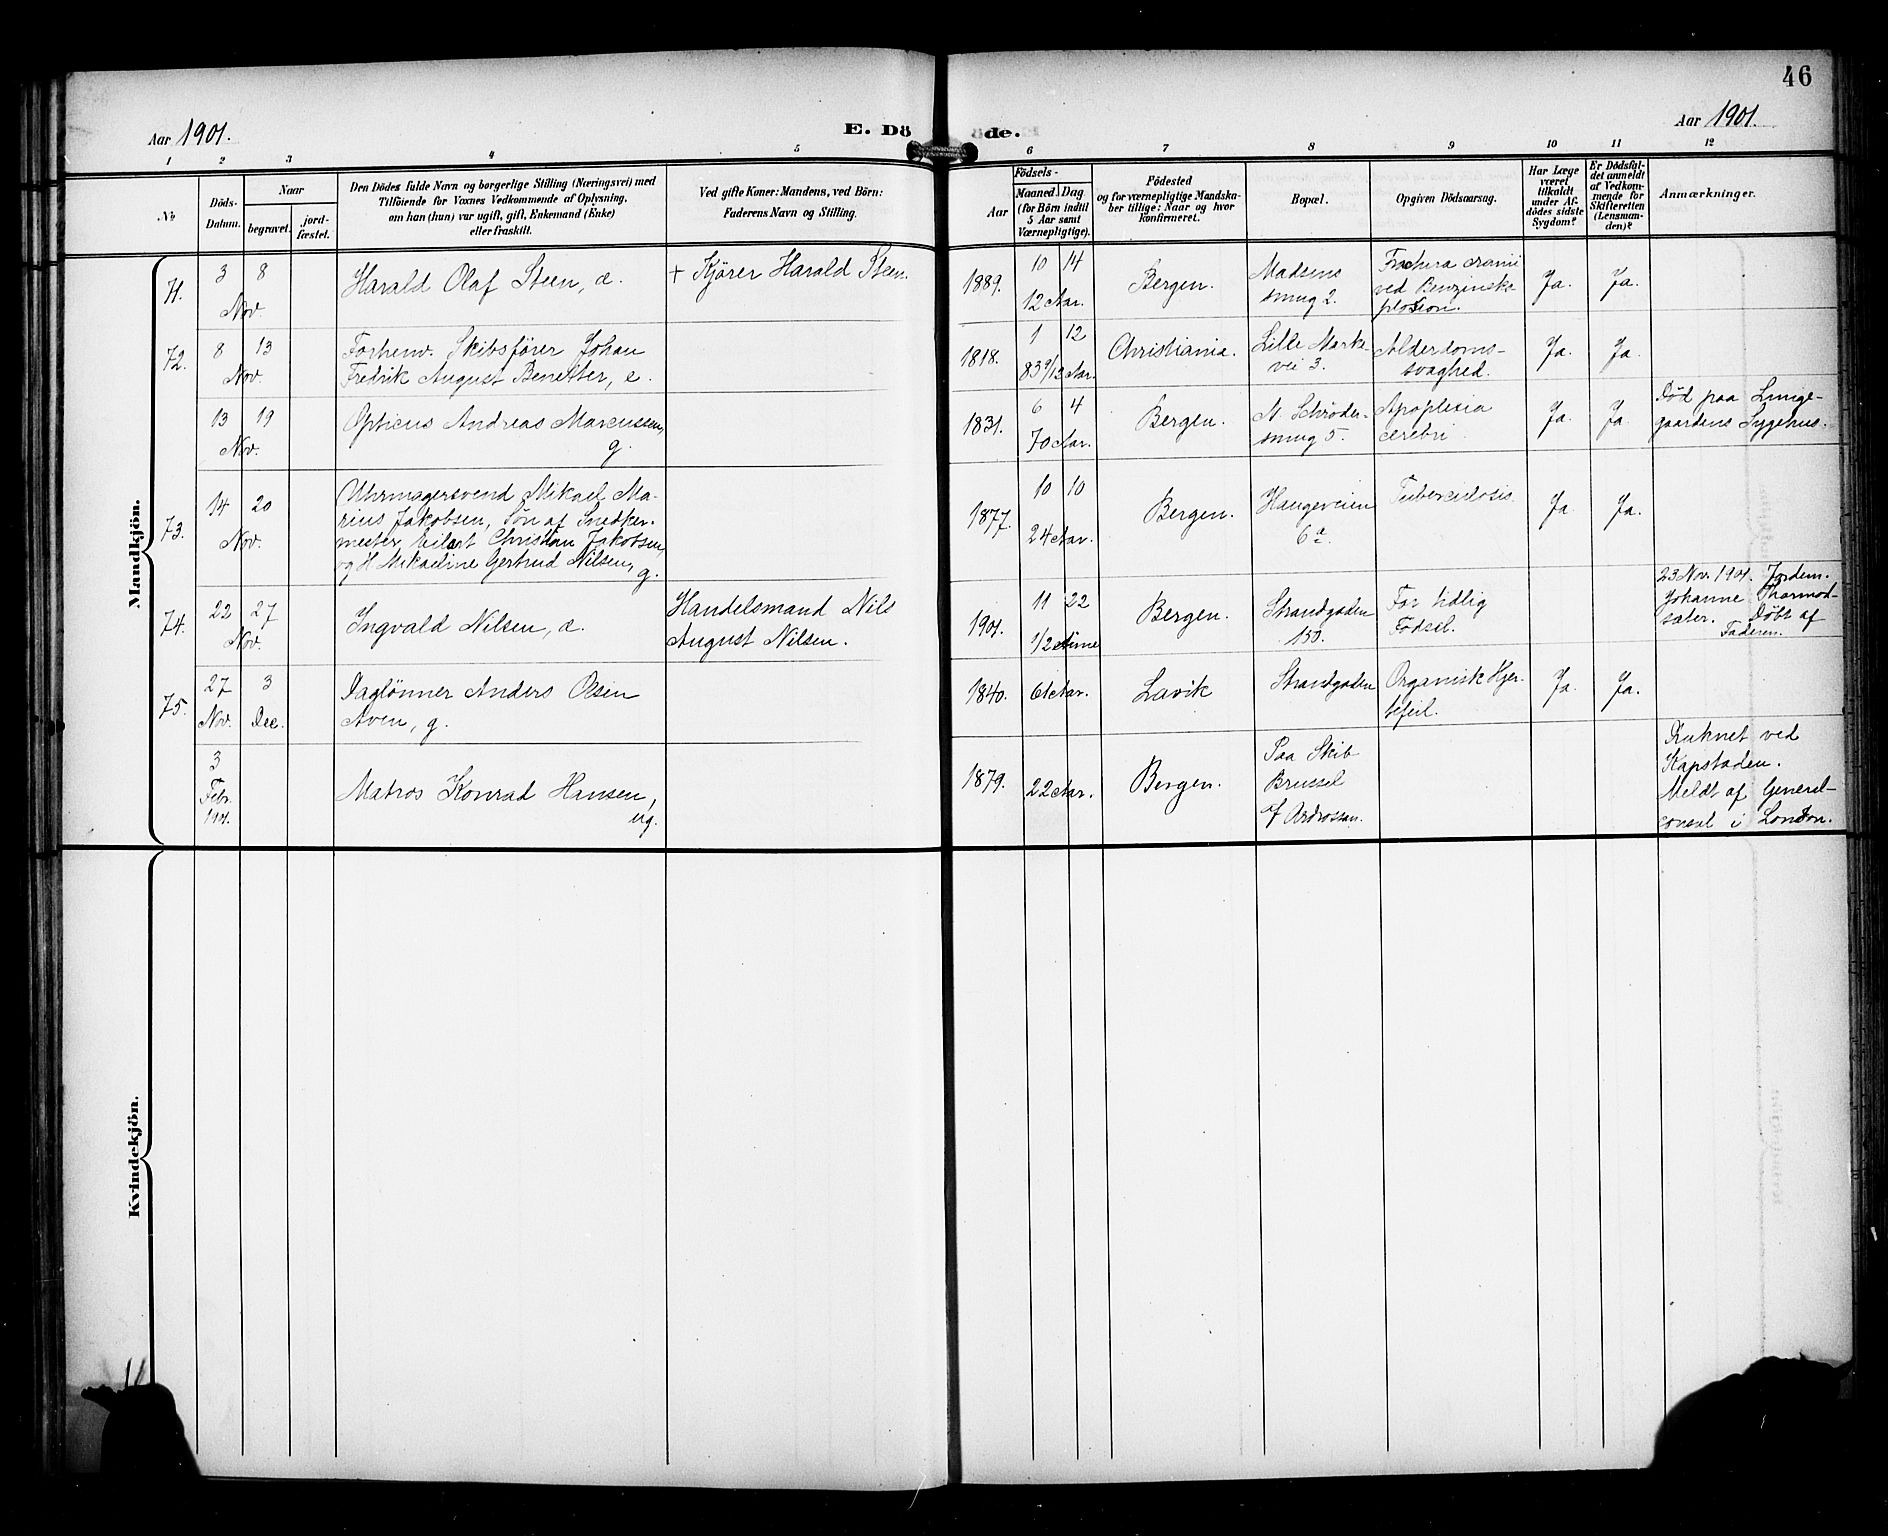 46
Aar 1901.
E. Döde.
Aar 1901.
1 2 3 4 5 6 7 8 9 10 11 12
No
Döds-
Datum.
Naar
begravet.
jord-
fæstet.
Den Dödes fulde Navn og borgerlige Stilling (Næringsvei) med
Tilföiende for Voxnes Vedkommende af Oplysning,
om han (hun) var ugift, gift, Enkemand (Enke)
eller fraskilt.
Ved gifte Koner: Mandens, ved Börn:
Faderens Navn og Stilling.
Födsels-
Aar
Maaned. Dag
(for Börn indtil
5 Aar samt
Værnepligtige).
Födested
og for værnepligtige Mandska-
ber tillige: Naar og hvor
konfirmeret.
Bopæl.
Opgiven Dödsaarsag.
Har Læge
været
tilkaldt
under Af-
dödes sidste
Sygdom?
Er Dödsfal-
det anmeldt
af Vedkom-
mende for
Skifteretten
(Lensman-
den)?
Anmærkninger.
Mandkjön.
71.
3 8
Nov.
Harald Olaf Steen, e.
+ Kjører Harald Steen.
1889.
10 14
12 Aar.
Bergen.
Madsens
smug 2.
Fractura cranii
ved Benzinsks-
plosion.
Ja.
Ja.
72.
8 13
Nov.
Forhenv. Skibsfører Johan
Fredrik August Benetter, e.
1818.
1 12
83 9/12 Aar.
Christiania.
Lille Marke-
vei 3.
Alderdoms-
svaghed.
Ja.
Ja.
13 19
Nov.
Opticus Andreas Marcussen,
g.
1831.
6 4
70 Aar.
Bergen.
A. Schrøder-
smug 5.
Apoplexia
cerebri
Ja.
Ja.
Død paa Lunge-
gaardens Sygehus.
73.
14 20
Nov.
Uhrmagersvend Mikael Ma-
rius Jakobsen, Søn af Snedker-
mester Eilert Christian Jakobsen,
og H Mikaeline Gertrud Nilsen, g.
1877.
10 10
24 Aar.
Bergen.
Haugeveien
6 a.
Tuberculosis
Ja.
Ja.
74.
22 27
Nov.
Ingvald Nilsen, e.
Handelsmand Nils
August Nilsen.
1901.
11 22
1/2 Time
Bergen.
Strandgaden
130.
For tidlig
Fødsel.
23 Nov. 1901. Jordem.
Johanne Thormod-
sæter. Døbt af
Faderen.
75.
27 3
Nov. Dec.
Dagløнner Anders Olsen
Aven, g.
1840.
61 Aar.
Lavik
Strandgaden
Organisk Hjer-
tefeil.
Ja.
Ja.
3
Febr.
1901.
Matros Konrad Hansen,
ug.
1879.
22 Aar.
Bergen.
Paa Skib
Brussel
af Ardrossan.
Druknet ved
Kapstaden.
Meldt af General-
consul i London.
Kvindekjön.